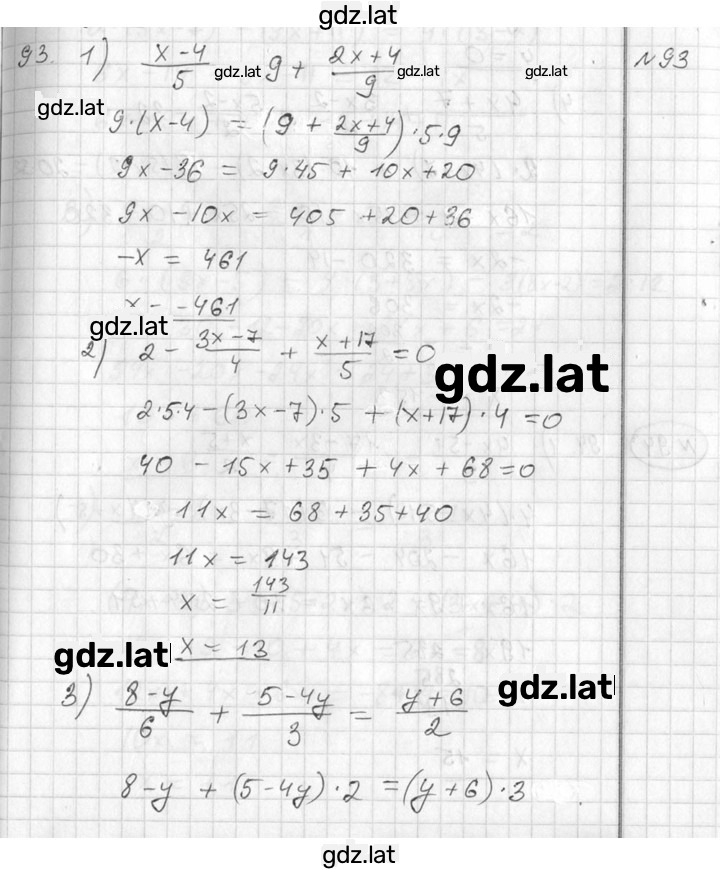 gdz.lat
93. 1) (x-4)/5 gdz.lat 9 + (2x+4)/9 gdz.lat №93
gdz.lat
9·(x-4) = (9 + (2x+4)/9)·5·9
9x-36 = 9·45 + 10x+20
9x-10x = 405 +20+36
-x = 461
x = -461
gdz.lat
2) 2 - (3x-7)/4 + (x+17)/5 = 0
gdz.lat
2·5·4-(3x-7)·5 + (x+17)·4 =0
40 - 15x+35 + 4x + 68=0
11x = 68+35+40
11x = 143
x = 143/11
gdz.lat x = 13
gdz.lat
3) (8-y)/6 + (5-4y)/3 = (y+6)/2
8-y + (5-4y)·2 = (y+6)·3
gdz.lat